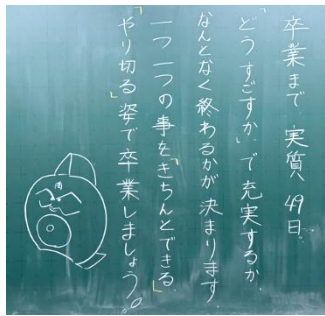 卒業まで 実質 49日
「どうすごすか」で充実するか
なんとなく終わるかが決まります
一つ一つの事を「きちんとできる」
「やり切る」姿で卒業しましょう。